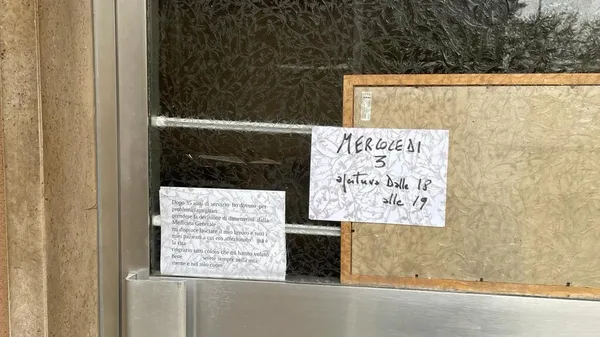 MERCOLEDI
3
apertura Dalle 18
alle 19
Dopo 35 anni di servizio ho dovuto per
problemi
prendere la decisione di dimettermi dalla
Medicina Generale
mi dispiace lasciare il mio lavoro e tutti i
miei pazienti a cui ero affezionato
la vita
ringrazio tutti coloro che mi hanno voluto
bene sempre nella mia
mente e nel mio cuore